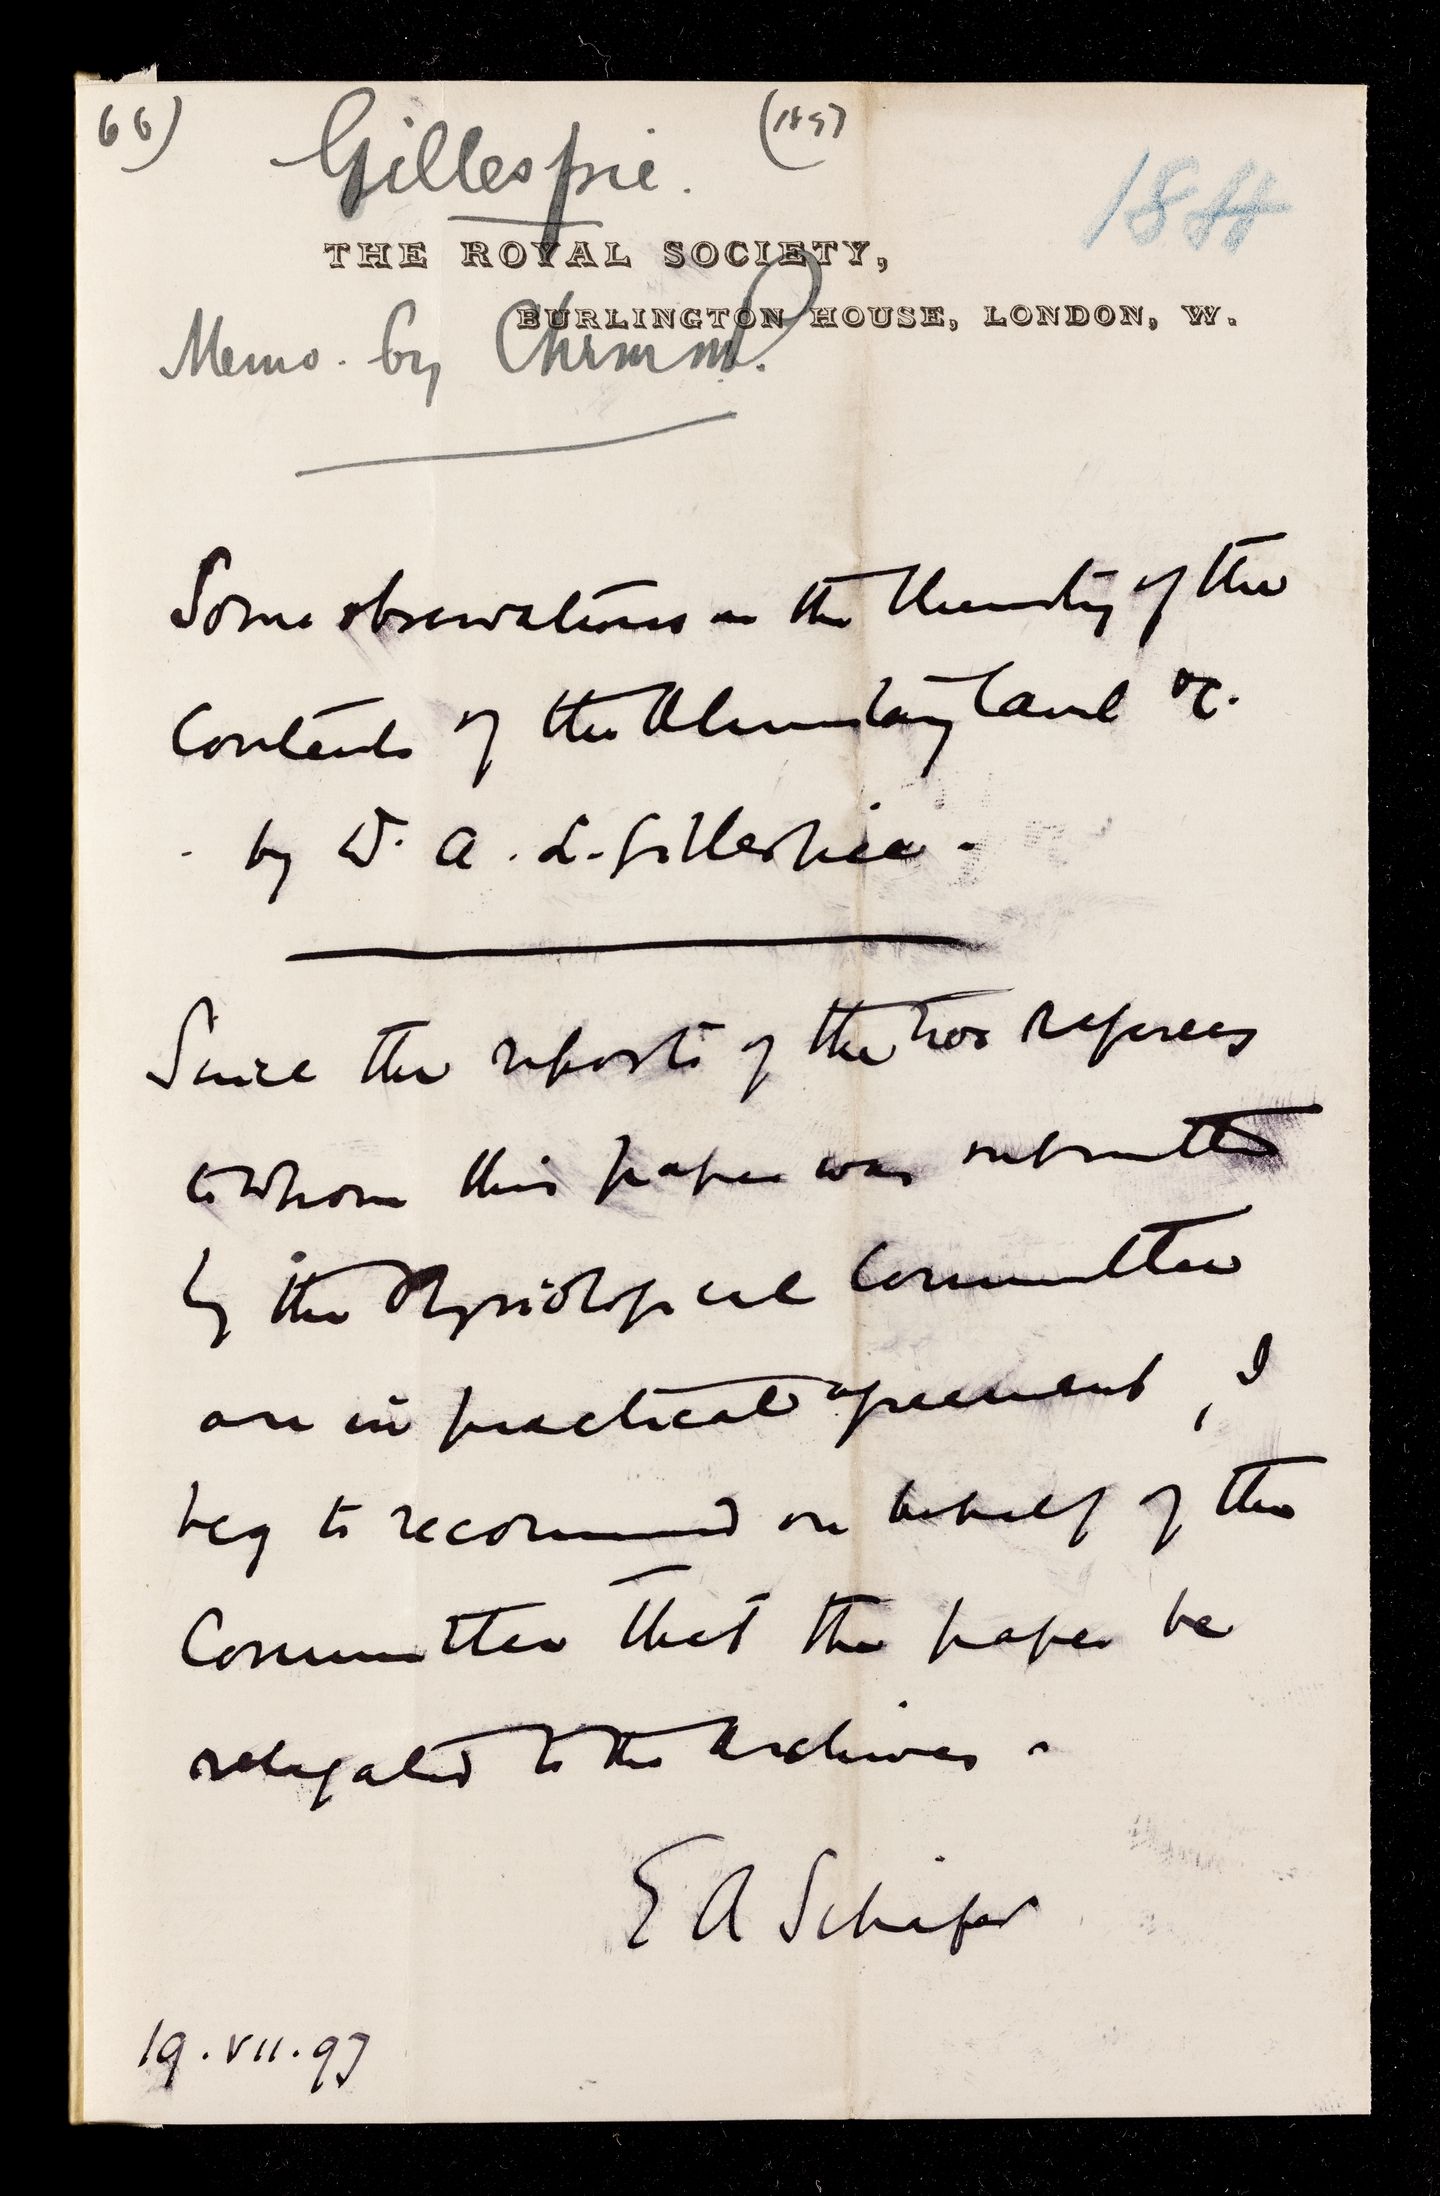 66)
Gillespie.
(1897
THE ROYAL SOCIETY,
BURLINGTON HOUSE, LONDON, W.
Memo. by Chrmn.
Some observations on the Chemistry of the
Contents of the Alimentary Canal &c.
by Dr. A. L. Gillespie.
Since the reports of the two referees
to whom this paper was submitted
by the Physiological Committee
are in practical agreement, I
beg to recommend on behalf of the
Committee that the paper be
relegated to the Archives.
E A Schäfer
19.VII.97